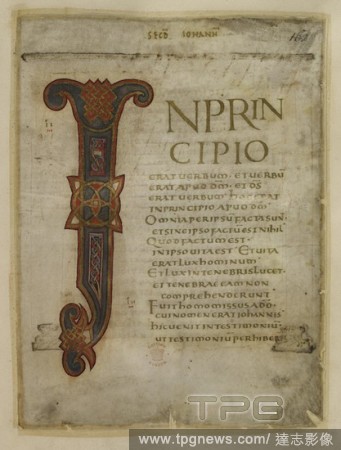 SECD IOHANN
161
INPRIN
CIPIO
ERAT UERBUM· ET UERBU
ERAT APUD DM· ET DS
ERAT UERBUM· HOC ERAT
IN PRINCIPIO APUD DM·
OMNIA PER IPSU FACTA SUN
ET SINE IPSO FACTU EST NIHIL
QUOD FACTUM EST·
IN IPSO UITA EST· ET UITA
ERAT LUX HOMINUM
ET LUX IN TENEBRIS LUCET·
ET TENEBRAE EAM NON
COMPREHENDERUNT
FUIT HOMO MISSUS A DO·
CUI NOMEN ERAT IOHANNIS
HIC UENIT IN TESTIMONIU·
UT TESTIMONIUM PERHIBER
TPG
www.tpgnews.com/達志影像